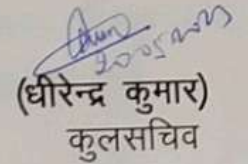 (धीरेन्द्र कुमार)
कुलसचिव